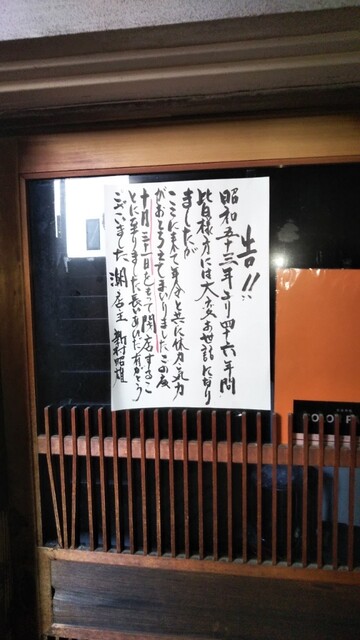 告!!
昭和五十三年より四十六年間
皆様方には大変お世話になり
ましたが
ここに来て年令と共に体力気力
がおとろえてまいりました この度
十月三十一日をもって閉店するこ
とに至りました 長いあいだ有がとう
ございました 潮 店主